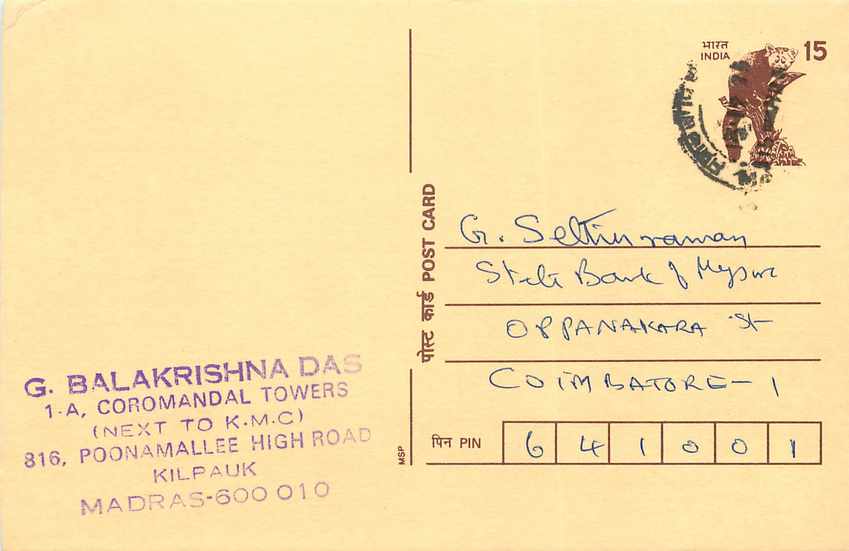 भारत
INDIA
15
पोस्ट कार्ड POST CARD
G. Sethuraman
State Bank of Mysore
OPPANAKARA St
COIMBATORE-1
पिन PIN 641001
MSP
G. BALAKRISHNA DAS
1-A, COROMANDAL TOWERS
(NEXT TO K.M.C)
816, POONAMALLEE HIGH ROAD
KILPAUK
MADRAS-600 010